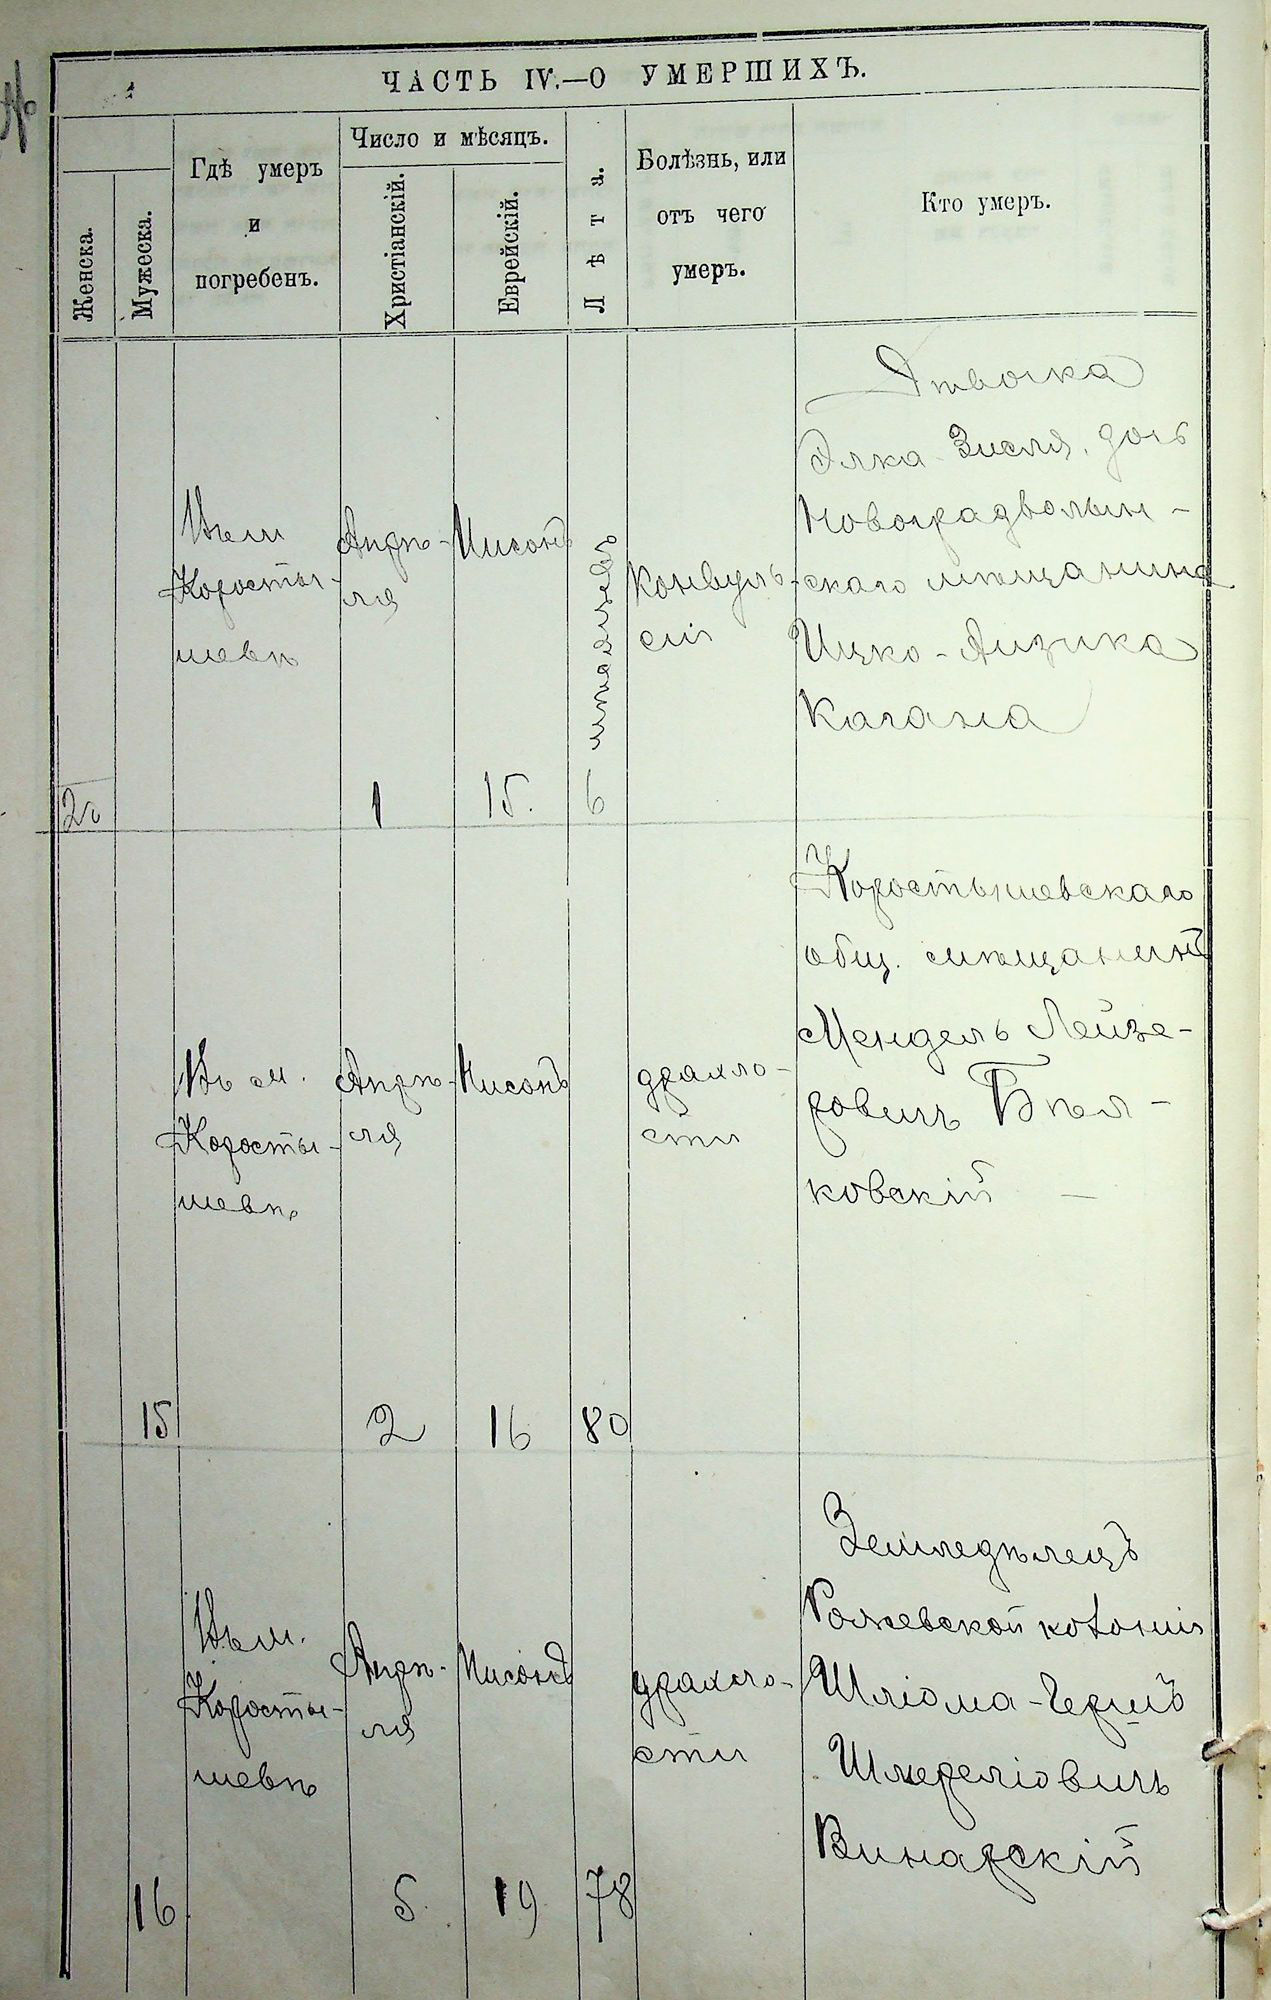 №
ЧАСТЬ IV.—О УМЕРШИХЪ.
Женска.
Мужеска.
Гдѣ умеръ
и
погребенъ.
Число и мѣсяцъ.
Христіанскій.
Еврейскій.
Лѣта.
Болѣзнь, или
отъ чего
умеръ.
Кто умеръ.
Въ м
Коросты-
шевѣ
Апрѣ-
ля
Нисонъ
мѣсяцевъ
Конвуль-
сіи
Дѣвочка
Элка Зисля, дочь
Новоградволын-
скаго мѣщанина
Ицко-Аизика
Кагана
20
1
15.
6
Въ м.
Коросты-
шевѣ
Апрѣ-
ля
Нисонъ
драхло-
сти
Коростышевскаго
общ. мѣщанинъ
Мендель Лейзе-
ровичъ Бѣля-
ковскій
15
2
16
80
Въ м.
Коросты-
шевѣ
Апрѣ-
ля
Нисонъ
драхло-
сти
Земледѣлецъ
колоніи
Шліома-Гершъ
Винарскій
16
5
19
78